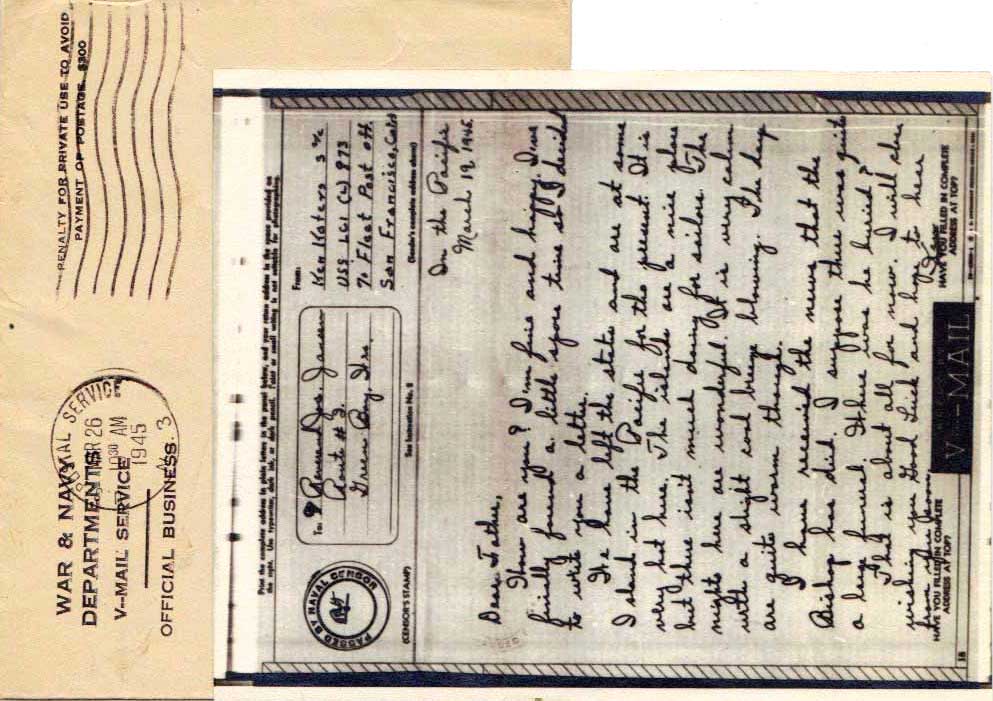 WAR & NAVY
DEPARTMENTS
V--MAIL SERVICE
OFFICIAL BUSINESS
PENALTY FOR PRIVATE USE TO AVOID
PAYMENT OF POSTAGE $300
SERVICE
26
30 AM
1945
3
Print the complete address in plain letters in the panel below, and your return address in the space provided on
PASSED BY NAVAL CENSOR
(CENSOR'S STAMP)
To:
Route # 3
Green Bay, Wis
See Instruction No. 2
From:
Ken
USS LCI (L) 873
% Fleet Post Off.
San Francisco, Calif
(Sender's complete address above)
In the Pacific
March 19, 1945
Dear Father,
How are you? I'm fine and happy. I've
finally found a little spare time so I decided
to write you a letter.
We have left the states and are at some
Island in the Pacific for the present. It is
very hot here. The islands are a nice place
but there isn't much doing for sailors. The
nights here are wonderful. It is very calm
with a slight cool breeze blowing. The day
are quite warm though.
I have received the news that the
Bishop has died. I suppose there was quite
a large funeral. Where was he buried?
That is about all for now. I will close
wishing you Good Luck and hope to hear
from you soon.
HAVE YOU FILLED IN COMPLETE
ADDRESS AT TOP?
V--MAIL
HAVE YOU FILLED IN COMPLETE
ADDRESS AT TOP?